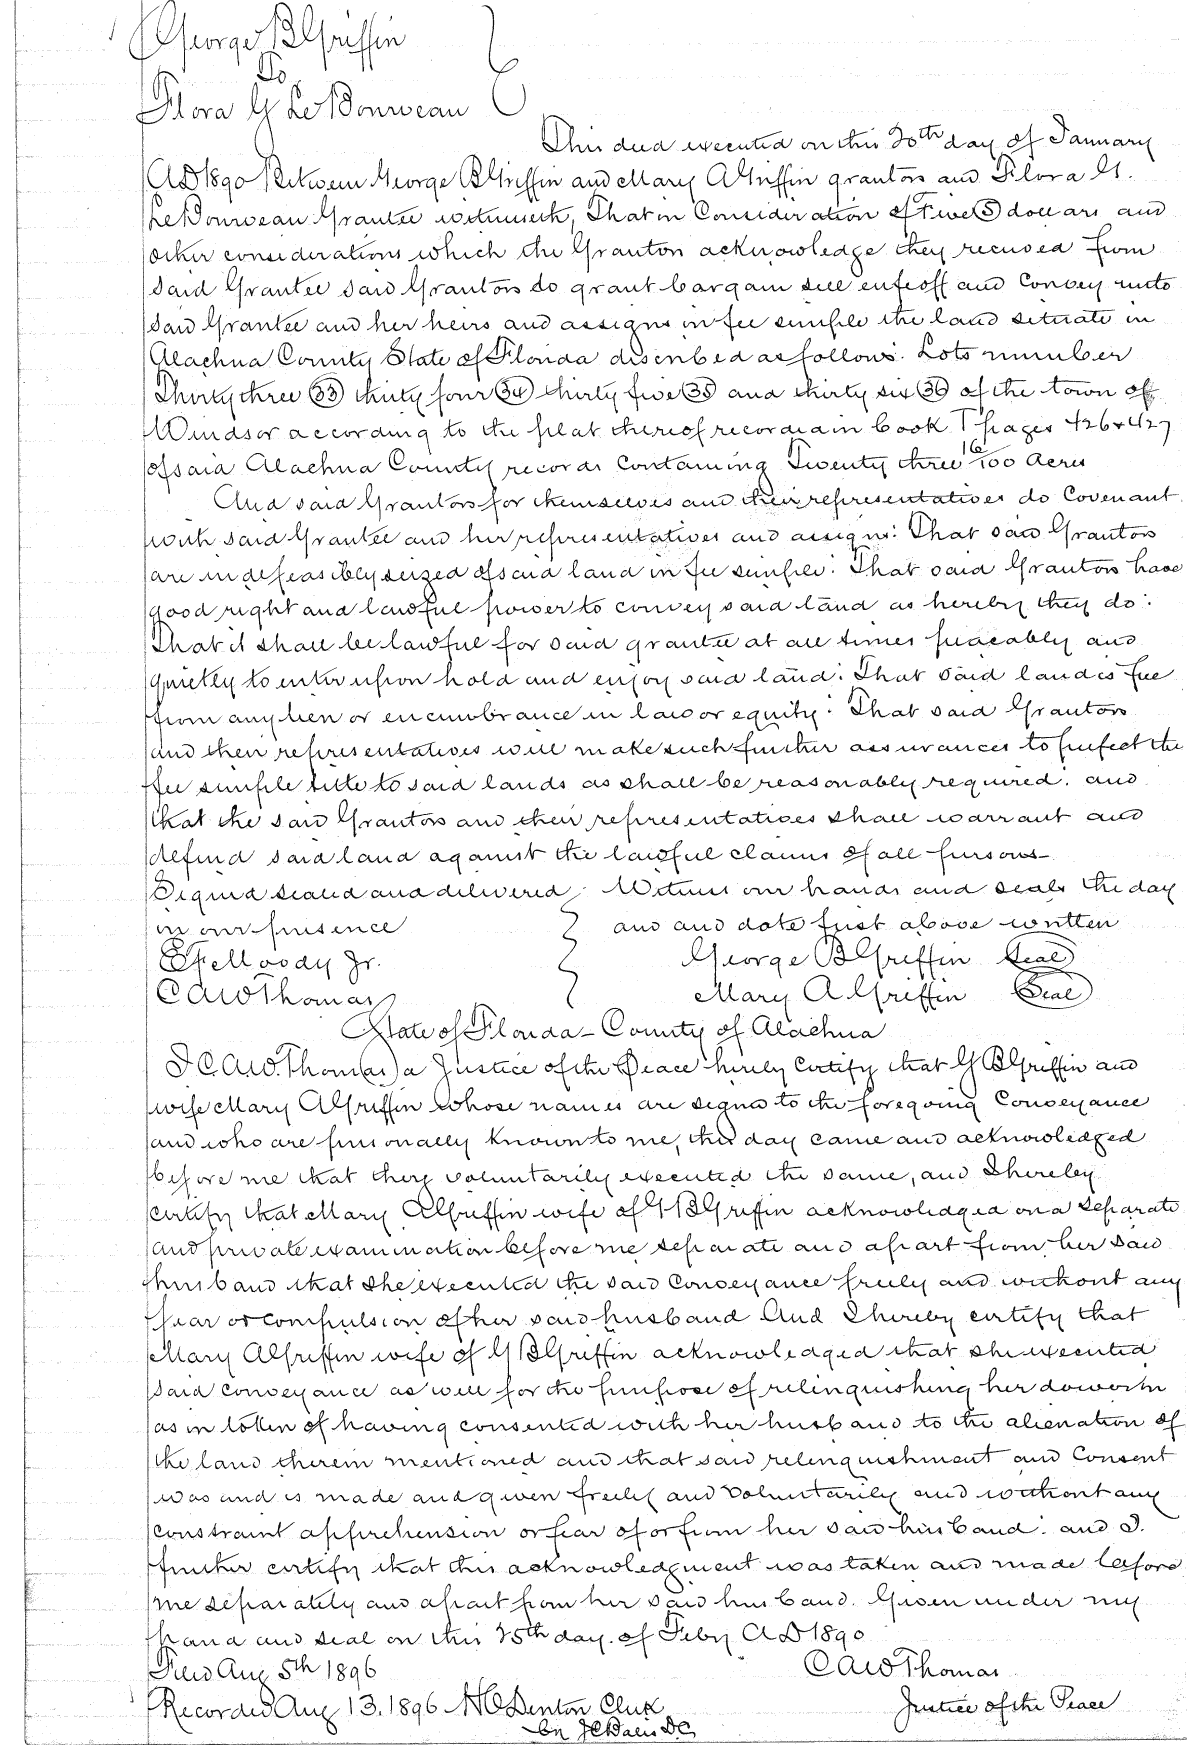 George B Griffin
To
Flora G LeDonweau
This deed executed on this 20th day of January
AD 1890 Between George B Griffin and Mary A Griffin grantors and Flora G.
LeDonweau Grantee witnesseth, That in Consideration of Five (5) dollars and
other considerations which the Grantors acknowledge they received from
said Grantee said Grantors do grant bargain sell enfeoff and Convey unto
said Grantee and her heirs and assigns in fee simple the land situate in
Alachua County State of Florida discribed as follows. Lots number
Thirty three (33) thirty four (34) thirty five (35) and thirty six (36) of the town of
Windsor according to the plat thereof recorded in book T pages 426 & 427
of said Alachua County records containing Twenty three 16/100 Acres
And said Grantors for themselves and their representatives do Covenant
with said Grantee and her representatives and assigns: That said Grantors
are indefeasibly seized of said land in fee simple: That said Grantors have
good right and lawful power to convey said land as hereby they do:
That it shall be lawful for said grantee at all times peaceably and
quietly to enter upon hold and enjoy said land: That said land is free
from any lien or encumbrance in law or equity: That said Grantors
and their representatives will make such further assurances to perfect the
fee simple title to said lands as shall be reasonably required. and
that the said Grantors and their representatives shall warrant and
defend said land against the lawful claims of all persons-
Signed sealed and delivered Witness our hands and seals the day
in our presence and and date first above written
EF Moody Jr. George B Griffin (Seal)
CAW Thomas Mary A Griffin (Seal)
State of Florida - County of Alachua
I C.A.W. Thom(as) a Justice of the Peace hereby certify that G B Griffin and
wife Mary A Griffin whose names are signed to the foregoing Conveyance
and who are personally known to me, this day came and acknowledged
before me that they voluntarily executed the same, and I hereby
certify that Mary A Griffin wife of G B Griffin acknowledged on a separate
and private examination before me separate and apart from her said
husband that she executed the said Conveyance freely and without any
fear or compulsion of her said husband And I hereby certify that
Mary A Griffin wife of G B Griffin acknowledged that she executed
said conveyance as well for the purpose of relinquishing her dower in
as in token of having consented with her husband to the alienation of
the land therein mentioned and that said relinquishment and Consent
was and is made and given freely and voluntarily and without any
constraint apprehension or fear of or from her said husband. and I.
further certify that this acknowledgment was taken and made before
me separately and apart from her said husband. Given under my
hand and seal on this 25th day of Feby AD 1890
Filed Aug 5th 1896 CAW Thomas
Recorded Aug 13, 1896 Denton Clerk Justice of the Peace
by D.C.